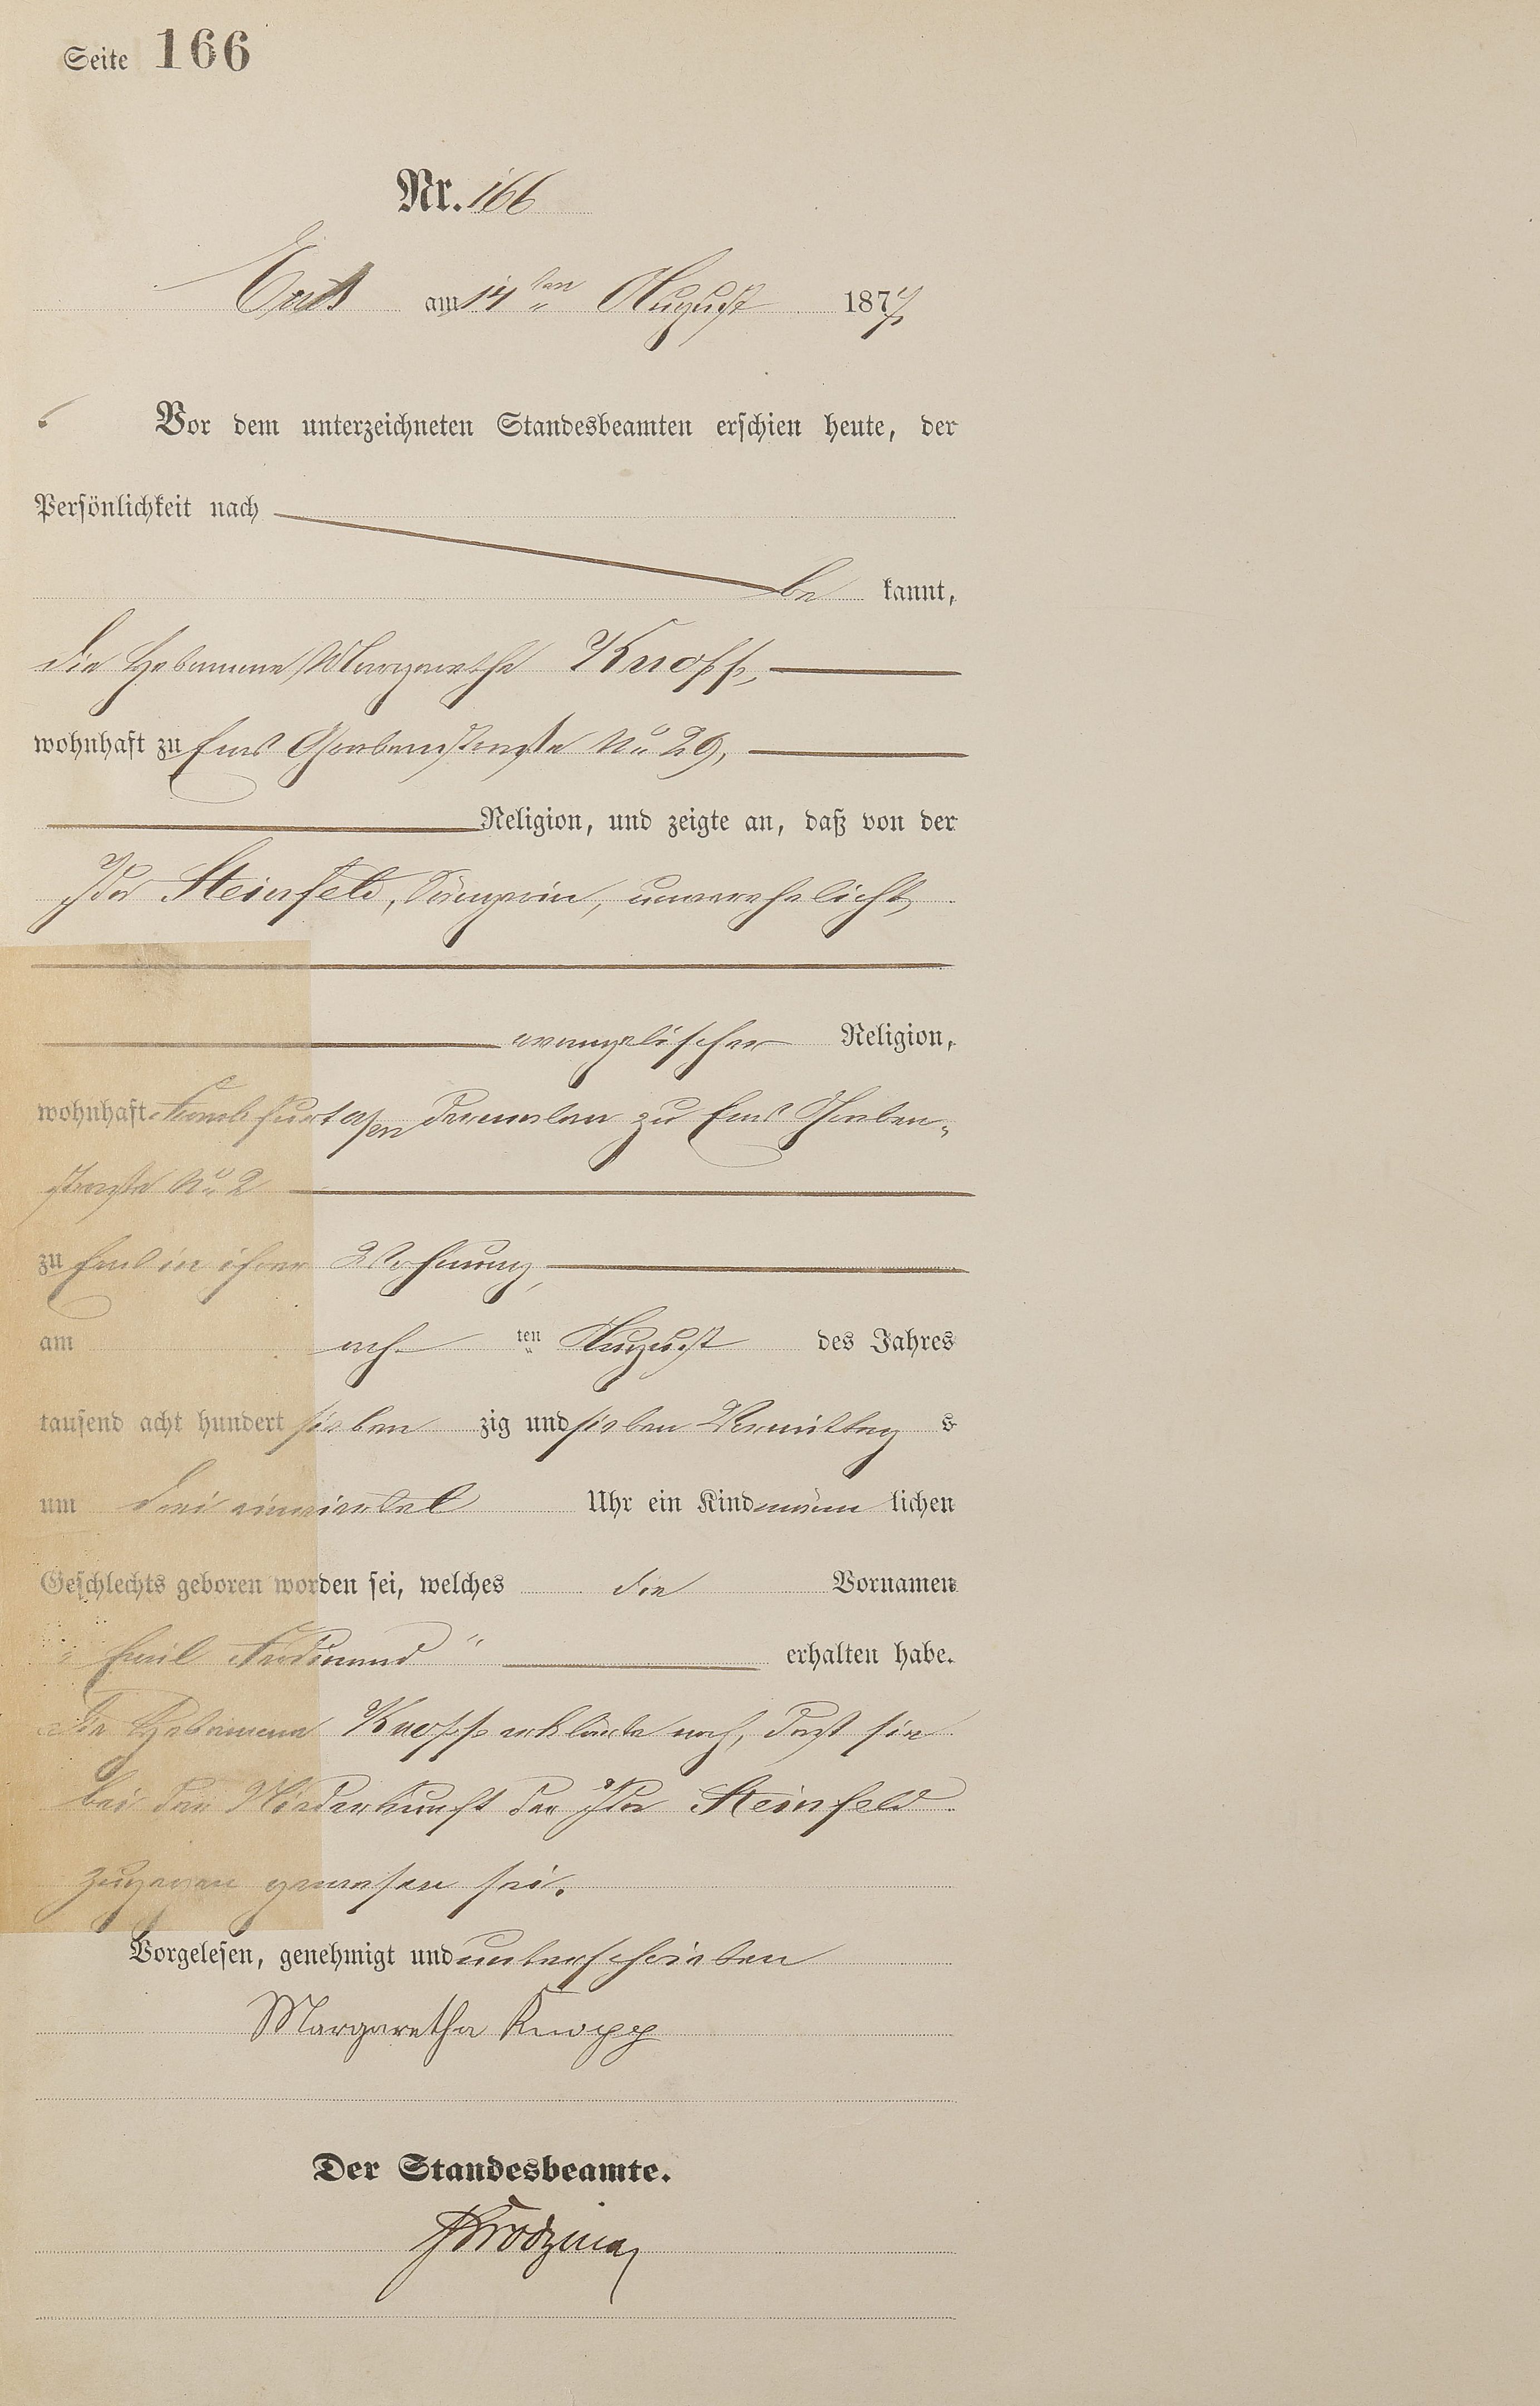 Seite 166
Nr. 166
Ems am 14ten August 1877
Vor dem unterzeichneten Standesbeamten erschien heute, der
Persönlichkeit nach
be kannt,
die Hebamme Margarethe Knopp,
wohnhaft zu Ems Grabenstraße No 29,
Religion, und zeigte an, daß von der
Ida Steinfeld, Sängerin, unverehelicht,
evangelischer Religion,
wohnhaft Frankfurt a/M dermalen zu Ems Graben-
straße No 2
zu Ems in ihrer Wohnung,
am ach ten August des Jahres
tausend acht hundert sieben zig und sieben Vormittag s
um drei einviertel Uhr ein Kind männ lichen
Geschlechts geboren worden sei, welches die Vornamen
"Emil Ferdinand" erhalten habe.
Die Hebamme Knopp erklärte noch, daß sie
bei der Niederkunft der Ida Steinfeld
zugegen gewesen sei.
Vorgelesen, genehmigt und unterschrieben
Margaretha Knopp
Der Standesbeamte.